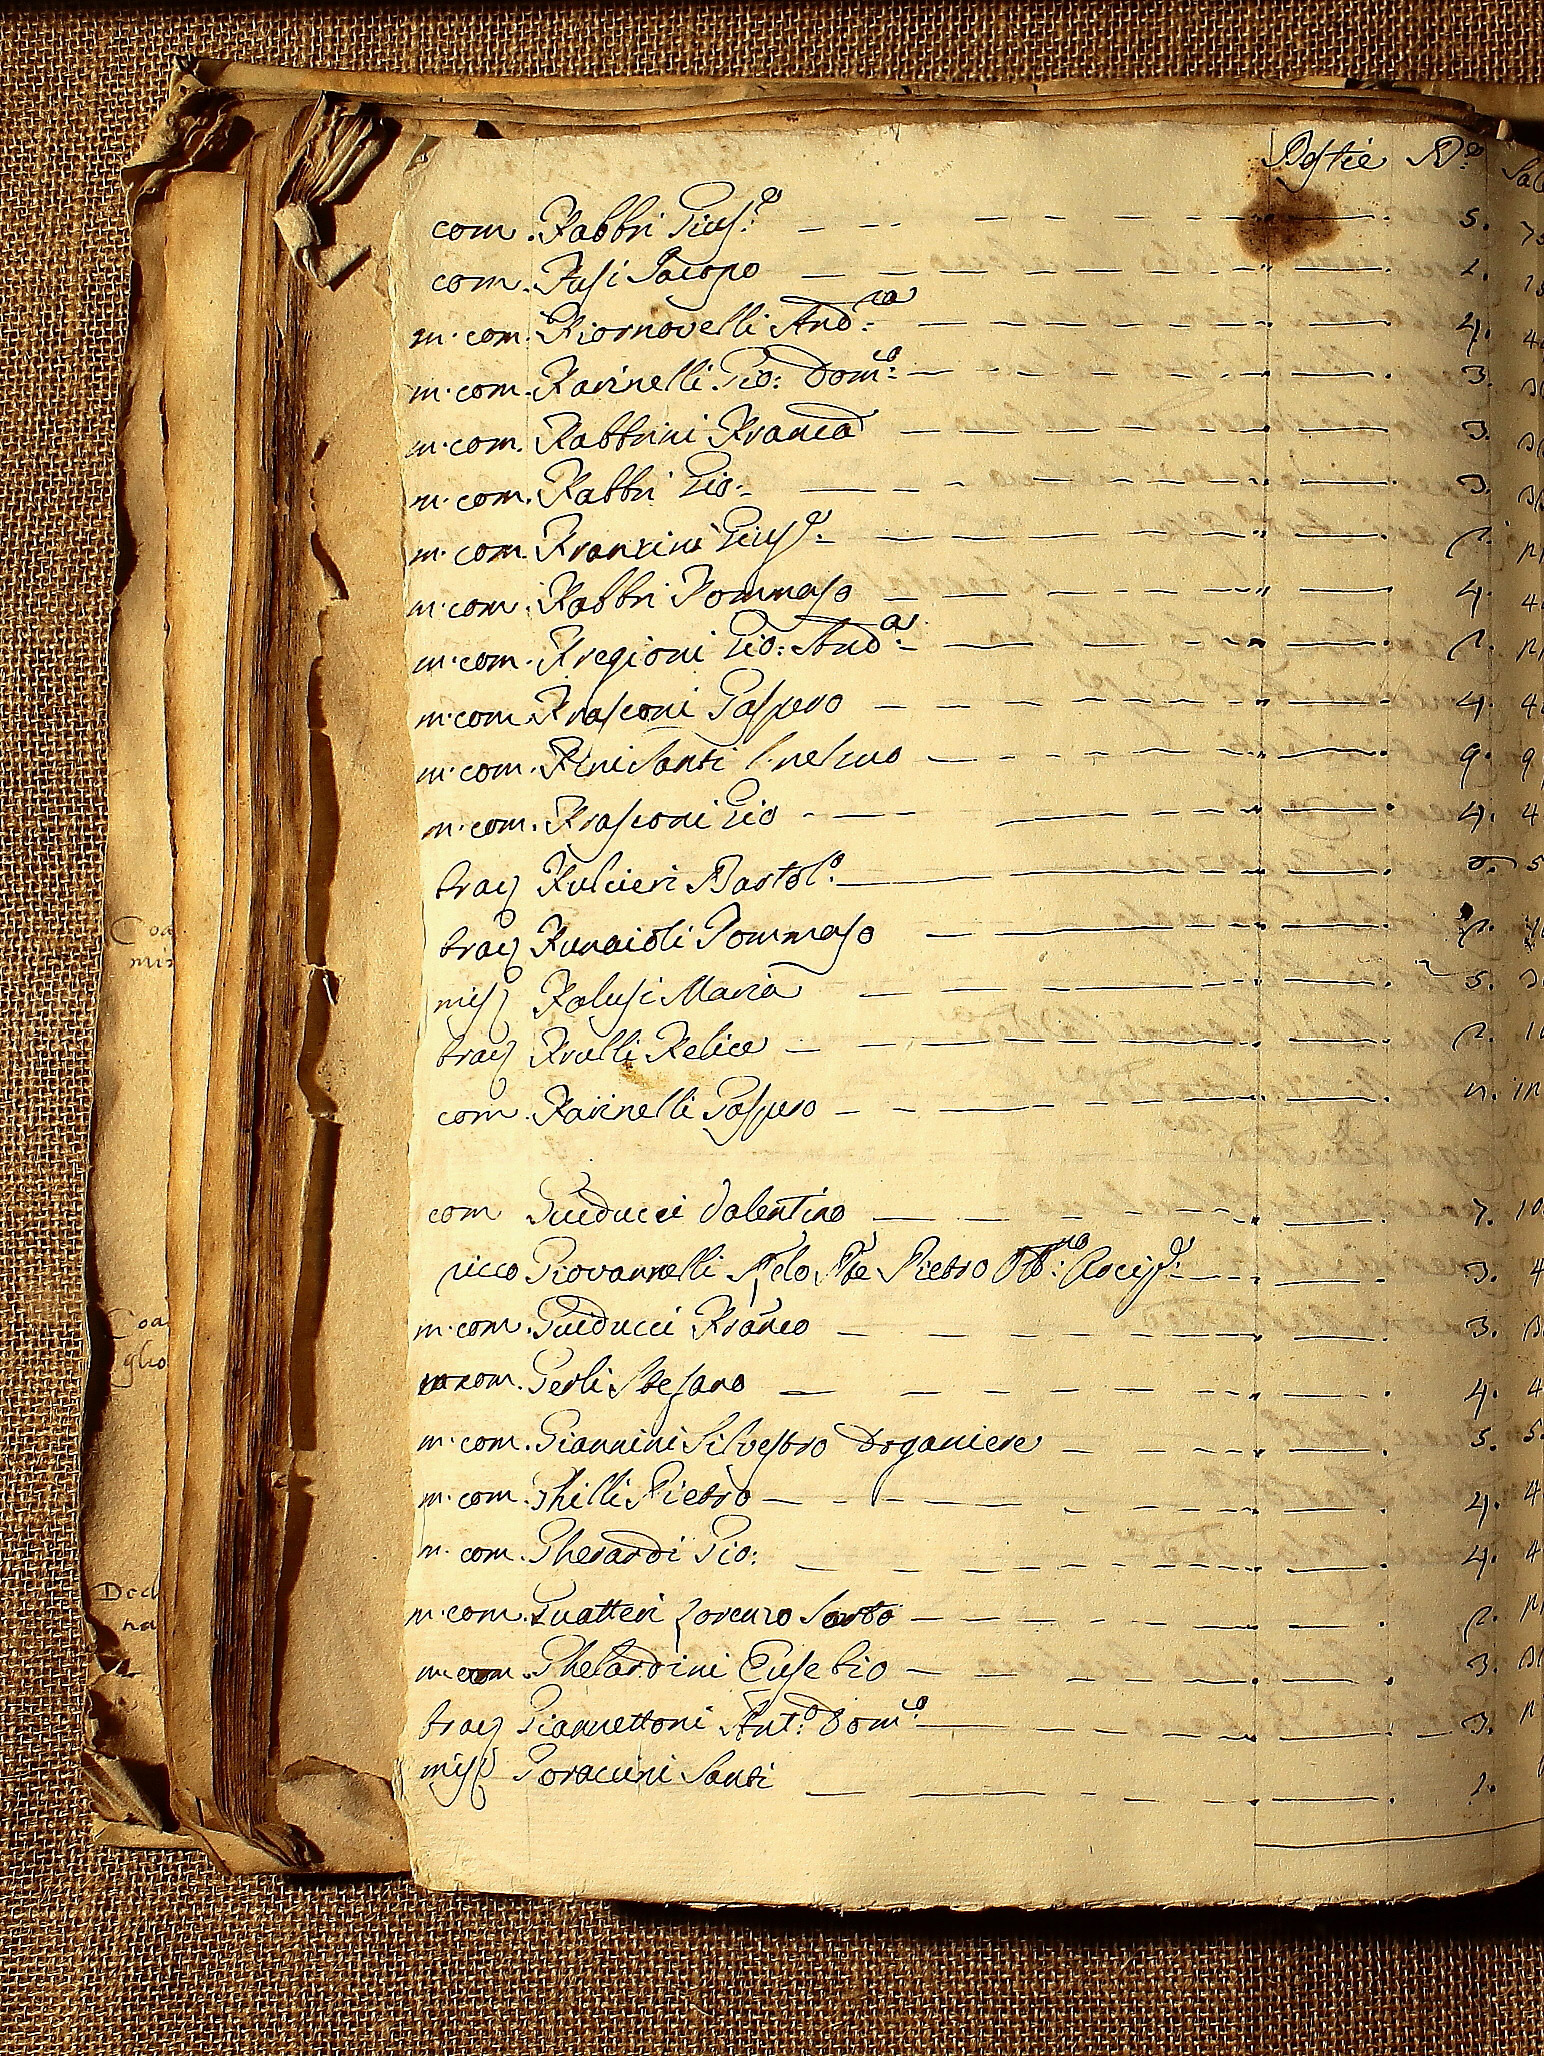 Bestie N.o
com. Fabbri Gius.e 5.
com. Fusi Jacopo
m. com. Fiornovelli And.ea 4.
m. com. Farinelli Gio: Dom.co 3.
m. com. Fabbrini Franc.o 3.
m. com. Fabbri Gio: 3.
m. com. Franzini Gius.e 2.
m. com. Fabbri Tommaso 4.
m. com. Fregioni Gio: And.a 2.
m. com. Frasconi Gaspero 4.
m. com. Fini Santi 9. 9
m. com. Frasconi Gio 4. 4
brac Fulcieri Bartol.o 5
brac Funaioli Tommaso 2.
mis Falusi Maria 5.
brac Frulli Felice 2.
com. Farinelli Gaspero
com Guiducci Valentino 7. 10
ricco Giovannelli Pietro 3. 4
m. com. Guiducci Franco 3.
m. com. Gerli Stefano 4. 4
m. com. Giannini Silvestro Doganiere 5. 5
m. com. Ghilli Pietro 4. 4
m. com. Gherardi Gio: 4. 4
m. com. Guatteri Lorenzo 2.
m. com. Ghelardini Eusebio 3.
brac Giannettoni Ant.o Dom.co 3.
mis Goraccini Santi
Coa
mis
Coa
glio
Ded
na